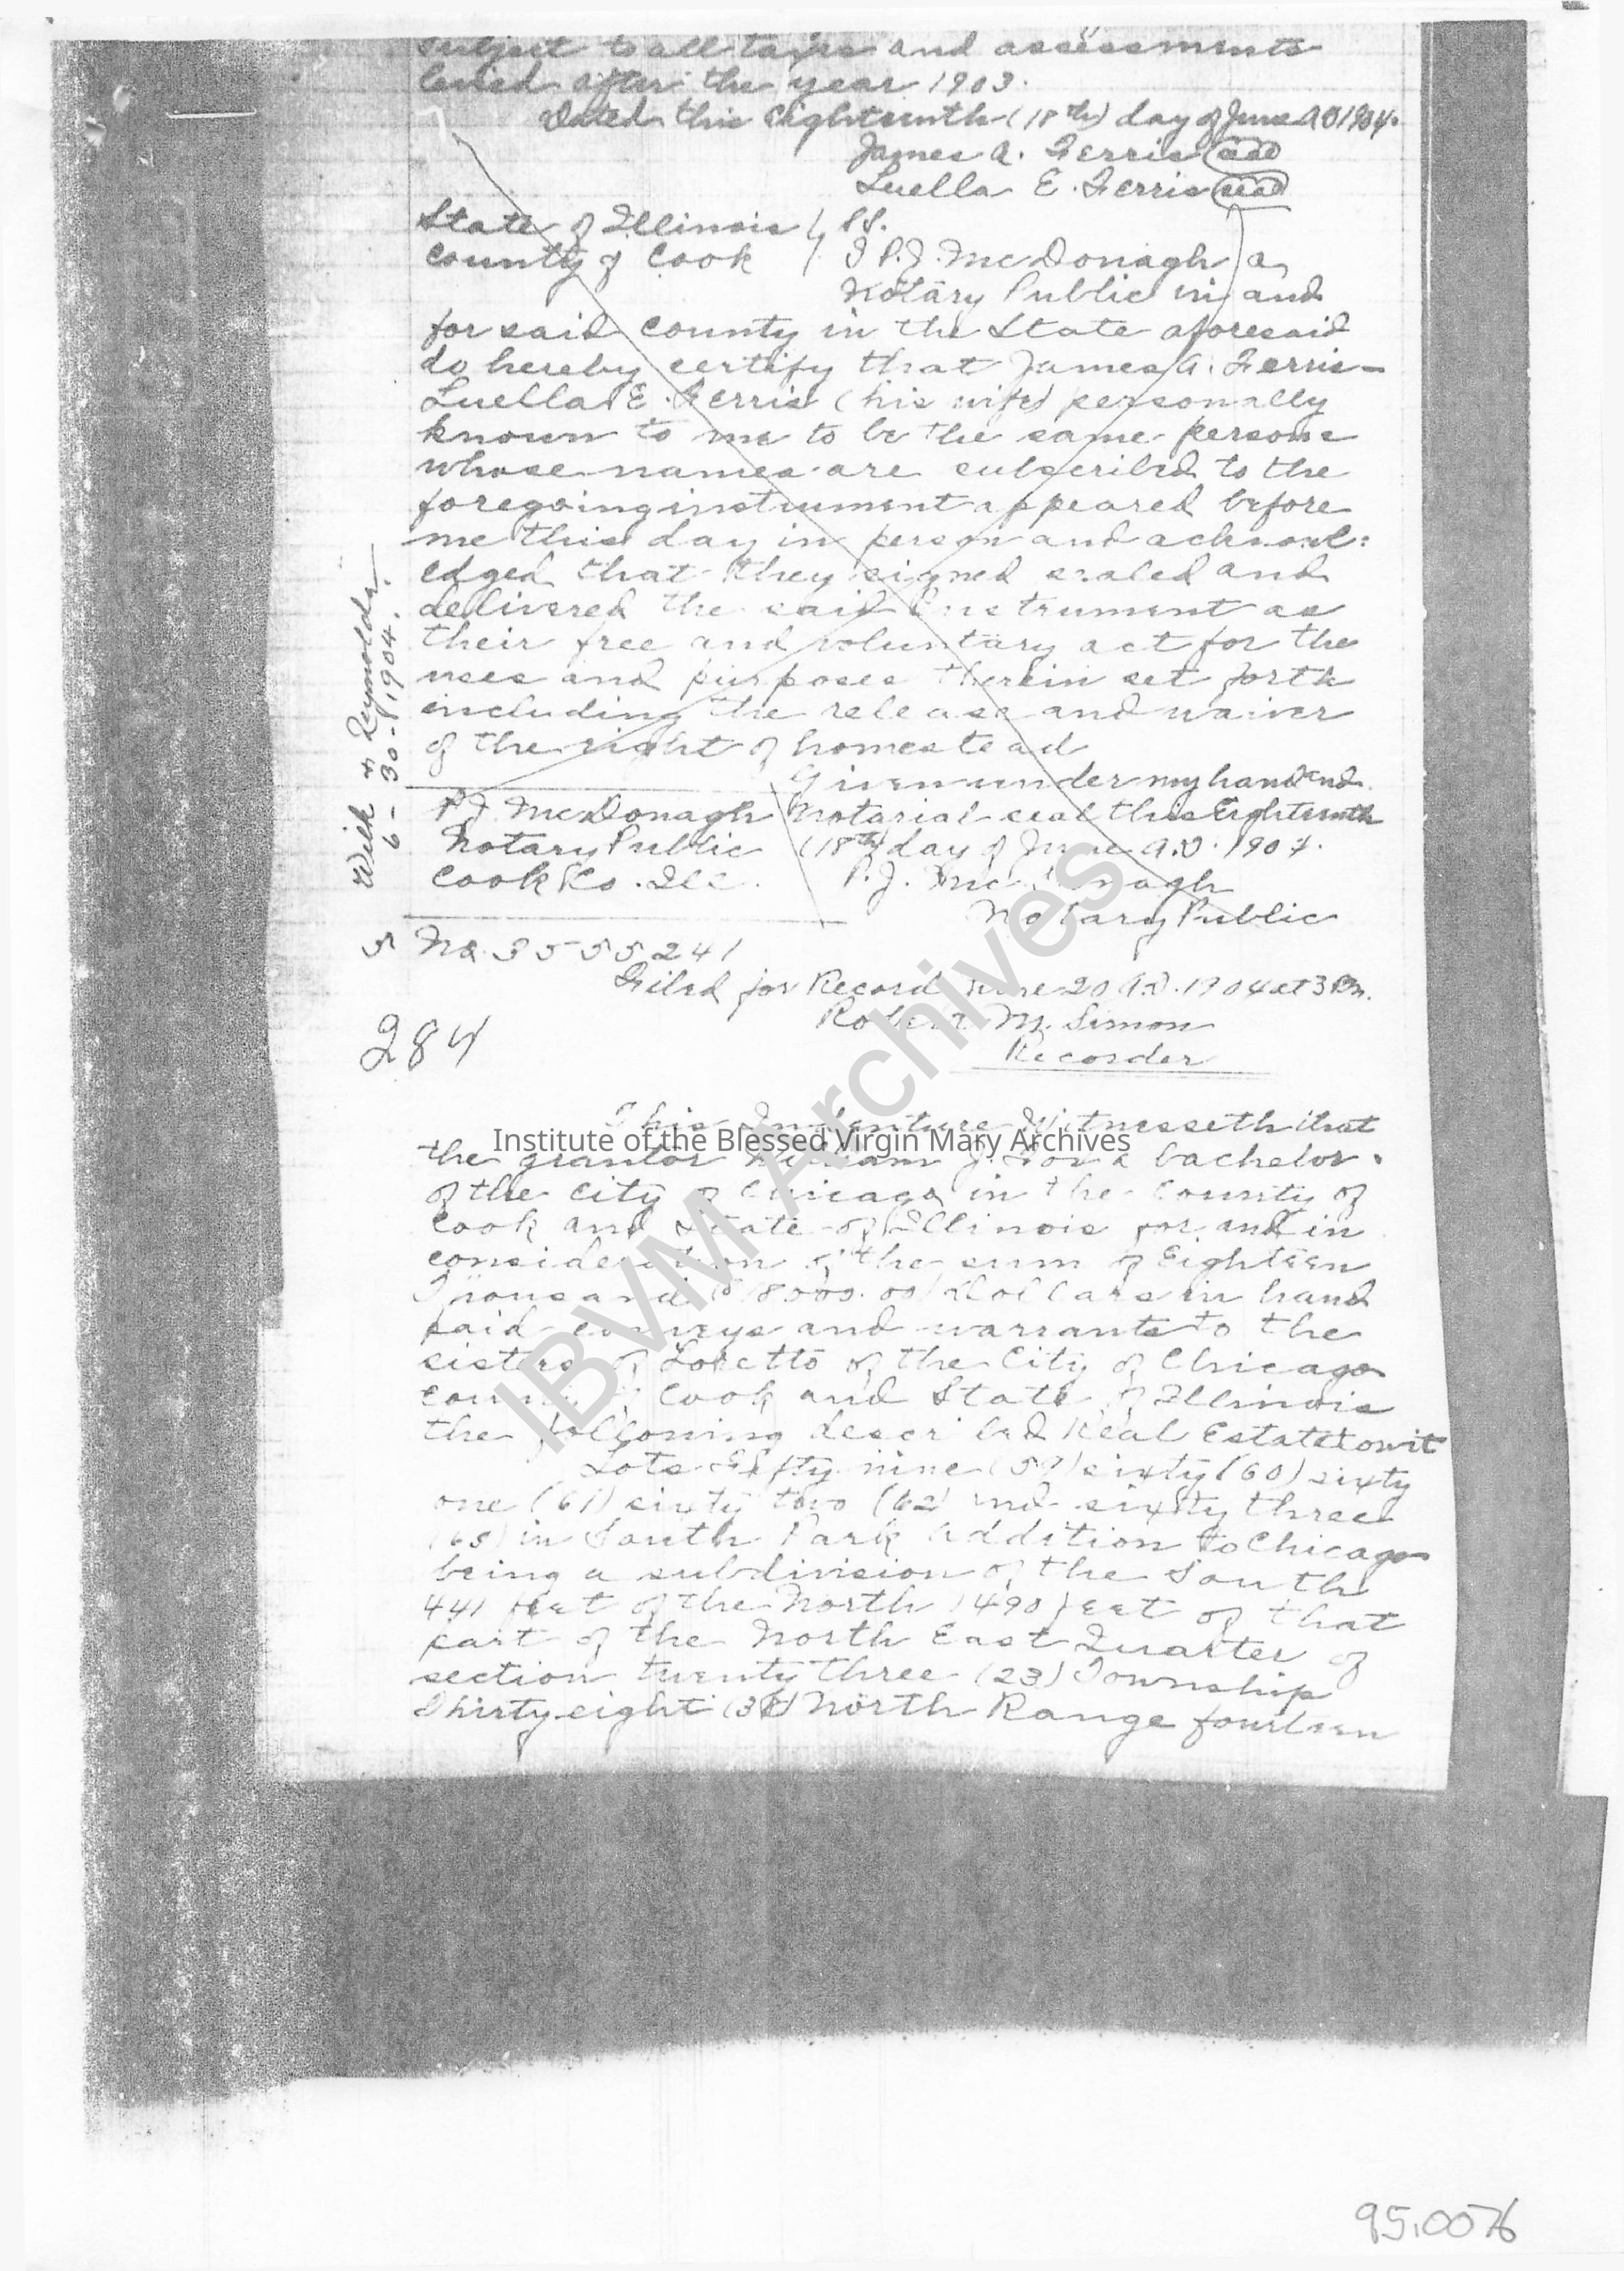 Subject to all taxes and assessments
levied after the year 1903.
Dated this Eighteenth (18th) day of June A.D 1904.
James A. Ferris seal
Luella E. Ferris seal
State of Illinois } SS.
County of Cook } I P.J. McDonagh a
Notary Public in and
for said County in the State aforesaid
do hereby certify that James A. Ferris
Luella E. Ferris (his wife) personally
known to me to be the same persons
whose names are subscribed to the
foregoing instrument appeared before
me this day in person and acknowl:
edged that they signed sealed and
delivered the said Instrument as
their free and voluntary act for the
uses and purposes therein set forth
including the release and waiver
of the right of homestead
Given under my hand and
P.J. McDonagh Notarial seal this Eighteenth
Notary Public (18th) day of June A.D. 1904.
Cook Co. Ill. P.J. McDonagh
Notary Public
Reynolds
6-30-1904.
5 No. 3555241
Filed for Record June 20 A.D. 1904 at 3 Pm.
Robert M. Simon
Recorder
284
This Indenture Witnesseth that
Institute of the Blessed Virgin Mary Archives
the grantor William J. a bachelor
of the City of Chicago in the County of
Cook and State of Illinois for and in
consideration of the sum of Eighteen
Thousand ($18000.00) Dollars in hand
paid conveys and warrants to the
sisters of Loretto of the City of Chicago
County of Cook and State of Illinois
the following described Real Estate to wit
Lots Fifty nine (59) sixty (60) sixty
one (61) sixty two (62) and sixty three
(63) in South Park Addition to Chicago
being a subdivision of the South
441 feet of the North 1490 feet of that
part of the North East Quarter of
section twenty three (23) Township
Thirty eight (38) North Range fourteen
IBVM Archives
95.0076